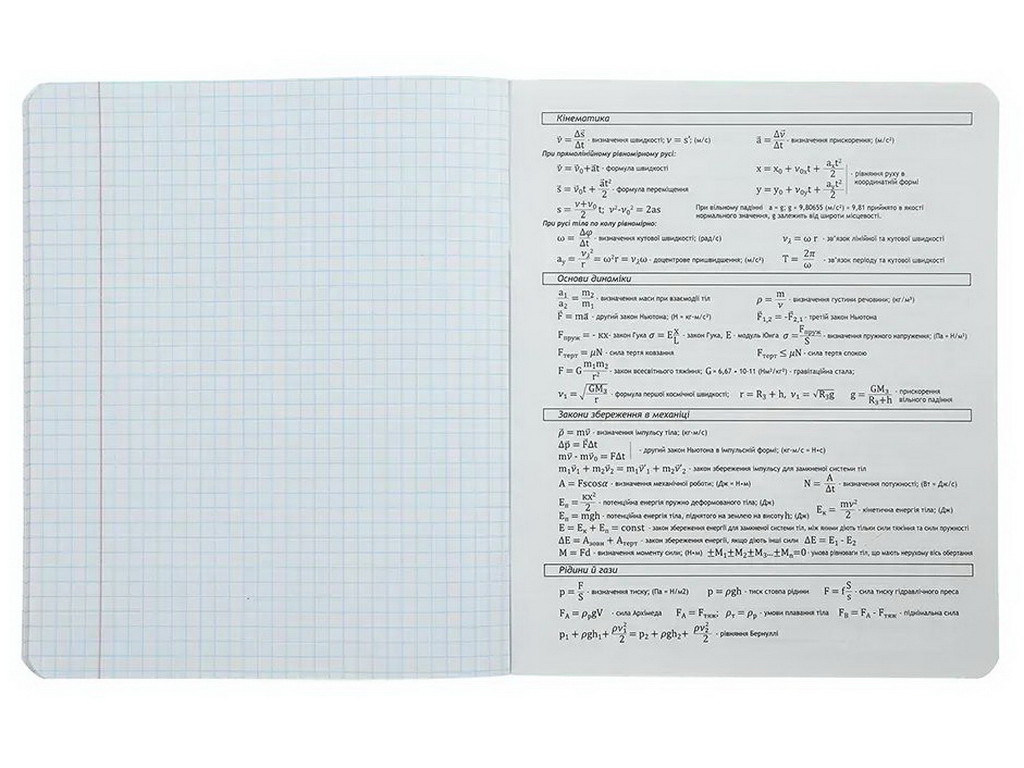 Кінематика
v⃗ = Δs⃗/Δt - визначення швидкості; v = s'; (м/с) a⃗ = Δv⃗/Δt - визначення прискорення; (м/с²)
При прямолінійному рівномірному русі:
v⃗ = v⃗₀+a⃗t - формула швидкості x = x₀ + v₀ₓt + aₓt²/2
s⃗ = v⃗₀t + a⃗t²/2 - формула переміщення y = y₀ + v₀ᵧt + aᵧt²/2 - рівняння руху в координатній формі
s = v+v₀/2 t; v²-v₀² = 2as При вільному падінні a = g; g = 9,80655 (м/с²) ≈ 9,81 прийнято в якості
нормального значення, g залежить від широти місцевості.
При русі тіла по колу рівномірно:
ω = Δφ/Δt - визначення кутової швидкості; (рад/с) v₂ = ω r - зв'язок лінійної та кутової швидкості
aᵧ = v₂²/r = ω²r = v₂ω - доцентрове пришвидшення; (м/с²) T = 2π/ω - зв'язок періоду та кутової швидкості
Основи динаміки
a₁/a₂ = m₂/m₁ - визначення маси при взаємодії тіл ρ = m/v - визначення густини речовини; (кг/м³)
F⃗ = ma⃗ - другий закон Ньютона; (Н = кг·м/с²) F⃗₁,₂ = -F⃗₂,₁ - третій закон Ньютона
Fпруж = - κx- закон Гука σ = E x/L - закон Гука, E - модуль Юнга σ = Fпруж/S - визначення пружного напруження; (Па = Н/м²)
Fтерт = μN - сила тертя ковзання Fтерт ≤ μN - сила тертя спокою
F = G m₁m₂/r² - закон всесвітнього тяжіння; G = 6,67 • 10-11 (Нм²/кг²) - гравітаційна стала;
v₁ = √GM₃/r - формула першої космічної швидкості; r = R₃ + h, v₁ = √R₃g g = GM₃/R₃+h - прискорення вільного падіння
Закони збереження в механіці
p⃗ = mv⃗ - визначення імпульсу тіла; (кг·м/с)
Δp⃗ = F⃗Δt
mv⃗ - mv⃗₀ = FΔt - другий закон Ньютона в імпульсній формі; (кг·м/с = Н•с)
m₁v⃗₁ + m₂v⃗₂ = m₁v⃗'₁ + m₂v⃗'₂ - закон збереження імпульсу для замкненої системи тіл
A = Fscosα - визначення механічної роботи; (Дж = Н•м) N = A/Δt - визначення потужності; (Вт = Дж/с)
Eп = κx²/2 - потенційна енергія пружно деформованого тіла; (Дж)
Eп = mgh - потенційна енергія тіла, піднятого на землею на висоту h; (Дж) Eк = mv²/2 - кінетична енергія тіла; (Дж)
E = Eк + Eп = const - закон збереження енергії для замкненої системи тіл, між якими діють тільки сили тяжіння та сили пружності
ΔE = Aзовн + Aтерт - закон збереження енергії, якщо діють інші сили ΔE = E₁ - E₂
M = Fd - визначення моменту сили; (Н•м) ±M₁±M₂±M₃...±Mₙ=0 - умова рівноваги тіл, що мають нерухому вісь обертання
Рідини й гази
p = F/S - визначення тиску; (Па = Н/м2) p = ρgh - тиск стовпа рідини F = f S/s - сила тиску гідравлічного преса
Fᴀ = ρₚgV - сила Архімеда Fᴀ = Fтяж; ρт = ρр - умови плавання тіла Fв = Fᴀ - Fтяж - піднімальна сила
p₁ + ρgh₁+ ρv₁²/2 = p₂ + ρgh₂+ ρv₂²/2 - рівняння Бернуллі